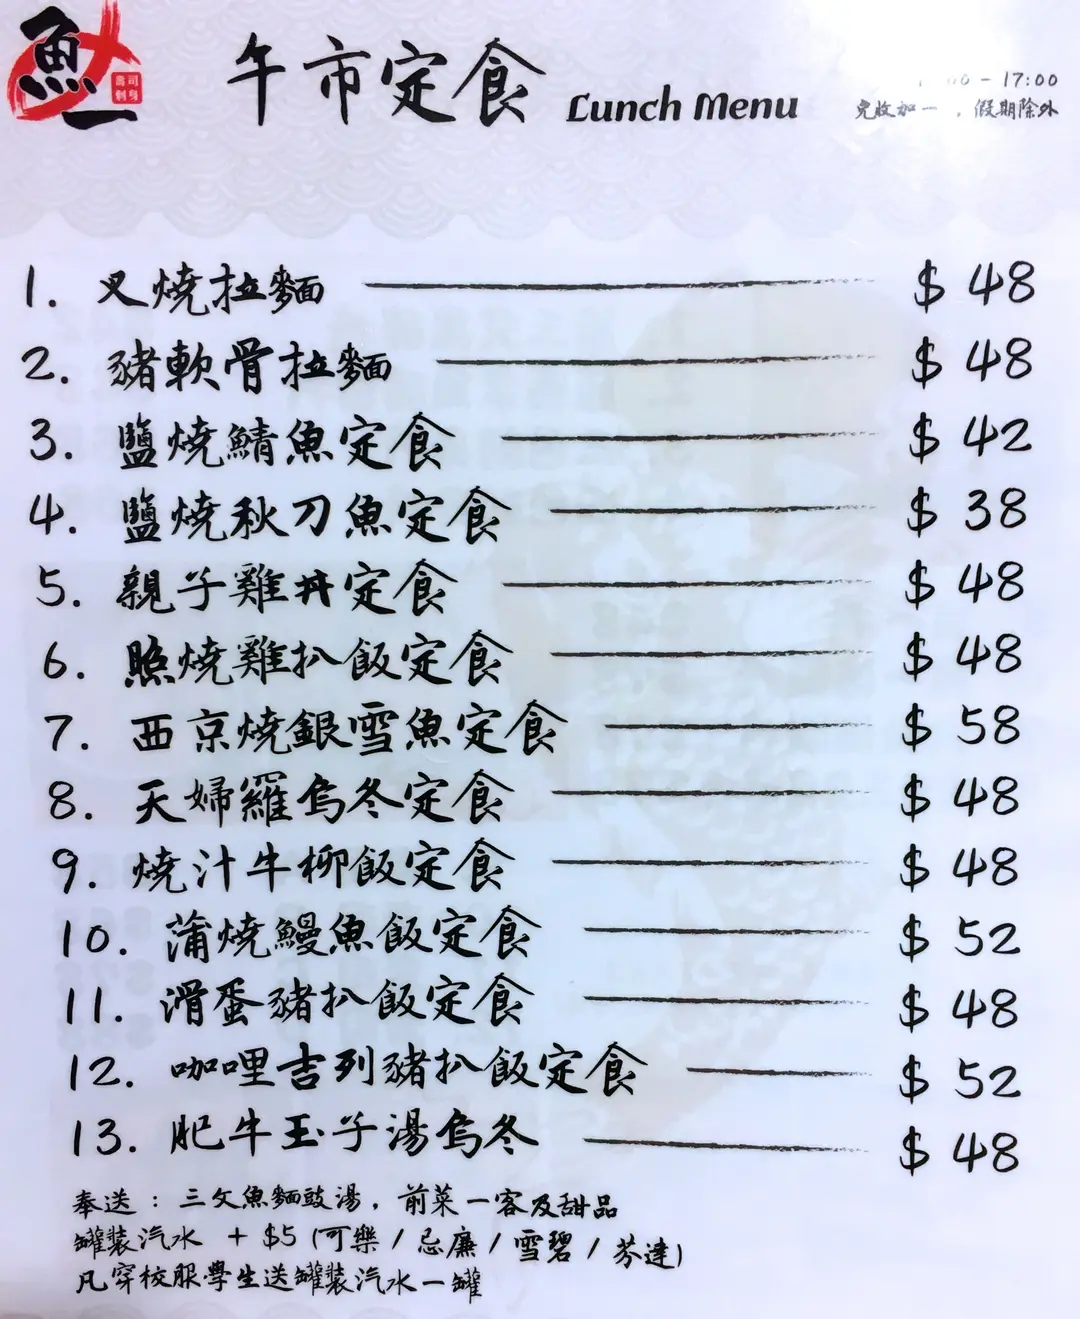 魚一
壽司
刺身
午市定食 Lunch Menu
00 - 17:00
免收加一，假期除外
1. 叉燒拉麵 $ 48
2. 豬軟骨拉麵 $ 48
3. 鹽燒鯖魚定食 $ 42
4. 鹽燒秋刀魚定食 $ 38
5. 親子雞丼定食 $ 48
6. 照燒雞扒飯定食 $ 48
7. 西京燒銀雪魚定食 $ 58
8. 天婦羅烏冬定食 $ 48
9. 燒汁牛柳飯定食 $ 48
10. 蒲燒鰻魚飯定食 $ 52
11. 滑蛋豬扒飯定食 $ 48
12. 咖哩吉列豬扒飯定食 $ 52
13. 肥牛玉子湯烏冬 $ 48
奉送：三文魚麵豉湯，前菜一客及甜品
罐裝汽水 + $5 (可樂 / 忌廉 / 雪碧 / 芬達)
凡穿校服學生送罐裝汽水一罐